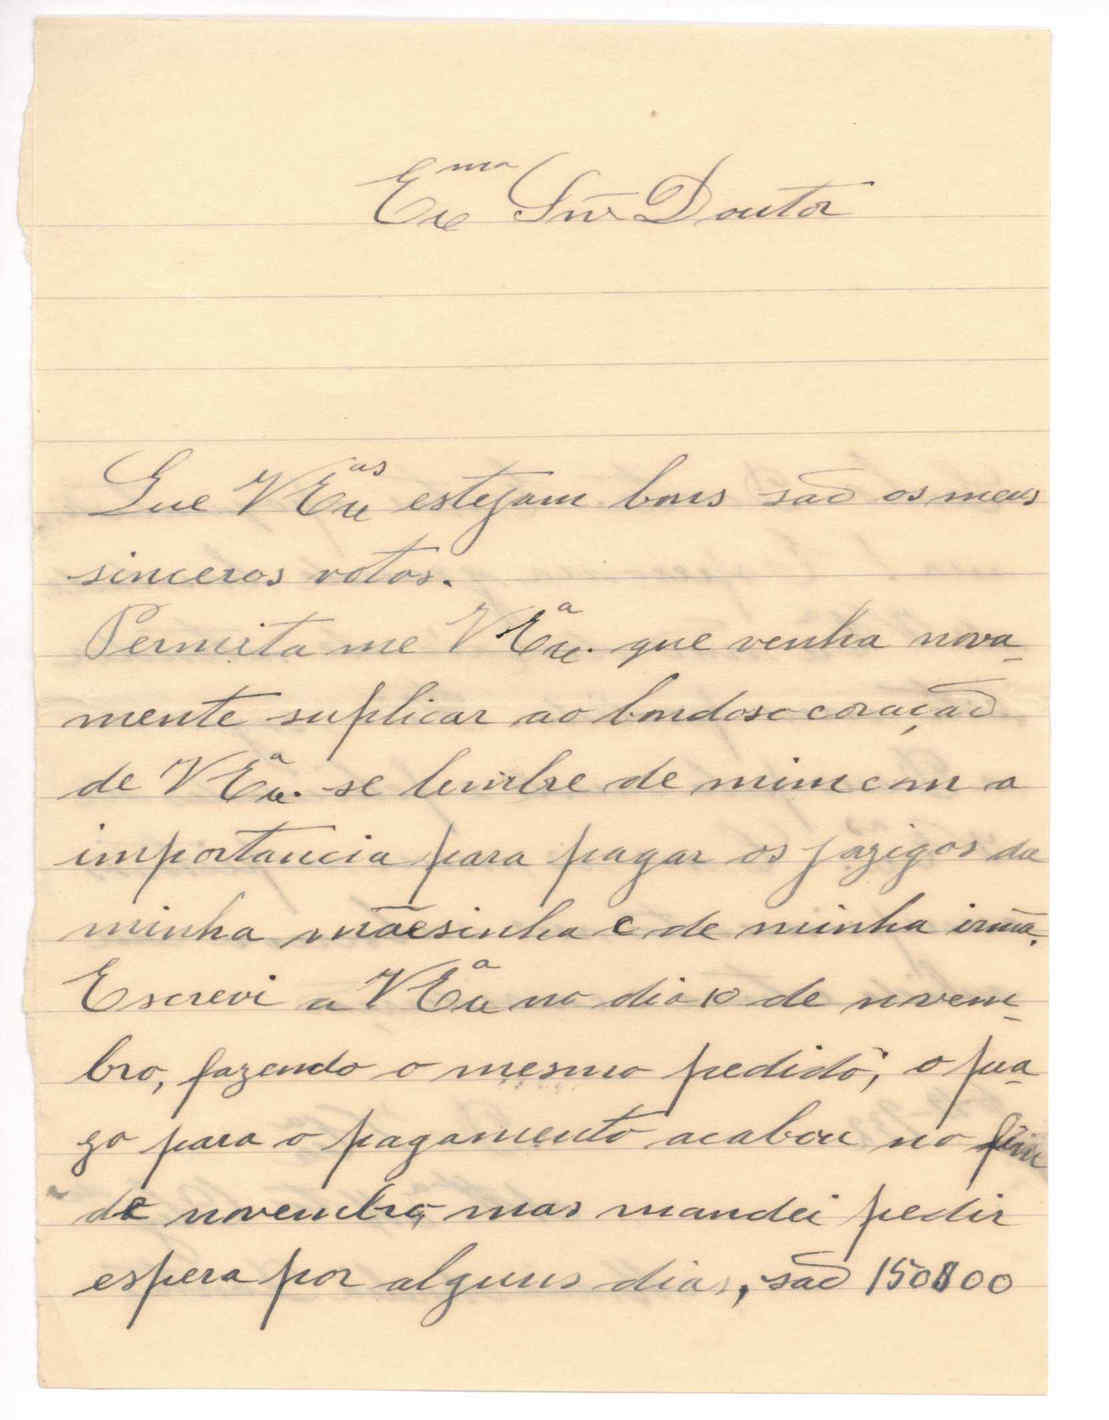 Exmo Snr Doutor
Que V Exas estejam bons são os meus
sinceros votos.
Permita me V Exa. que venha nova-
mente suplicar ao bondoso coração
de V Exa. se lembre de mim com a
importancia para pagar os jazigos da
minha mãesinha e de minha irmã.
Escrevi a V Exa no dia 10 de novem-
bro, fazendo o mesmo pedido, o pra-
zo para o pagamento acabou no fim
de novembro, mas mandei pedir
espera por alguns dias, são 150$00